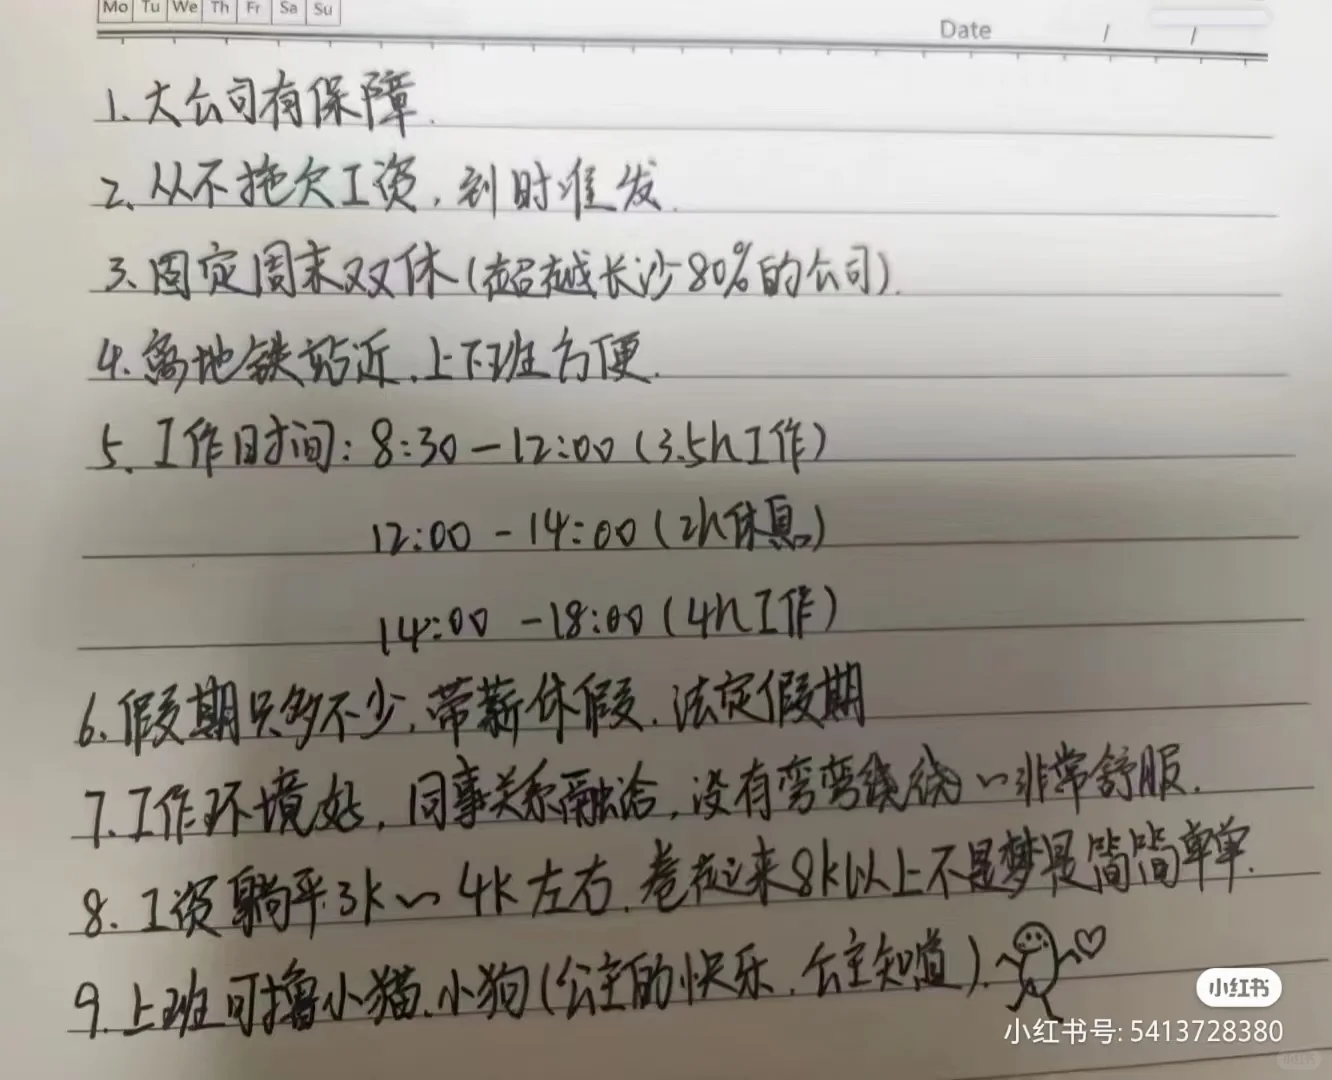 Mo Tu We Th Fr Sa Su
Date / /
1. 大公司有保障.
2. 从不拖欠工资, 到时准发.
3. 固定周末双休(超越长沙80%的公司).
4. 离地铁站近, 上下班方便.
5. 工作时间: 8:30 — 12:00 (3.5h工作)
12:00 - 14:00 (2h休息)
14:00 - 18:00 (4h工作)
6. 假期只多不少, 带薪休假. 法定假期
7. 工作环境好, 同事关系融洽, 没有弯弯绕绕~非常舒服.
8. 工资躺平3k~4k左右. 卷起来8k以上不是梦是简简单单.
9. 上班可撸小猫.小狗(公主的快乐. 公主知道).
小红书
小红书号: 5413728380